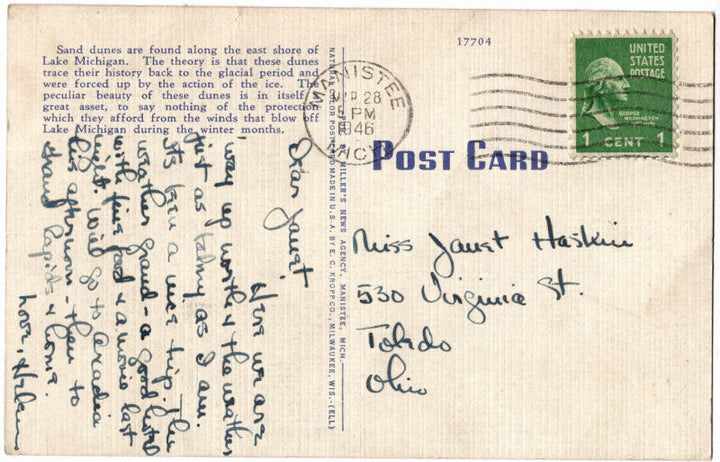 Sand dunes are found along the east shore of
Lake Michigan. The theory is that these dunes
trace their history back to the glacial period and
were forced up by the action of the ice. The
peculiar beauty of these dunes is in itself a
great asset, to say nothing of the protection
which they afford from the winds that blow off
Lake Michigan during the winter months.
17704
MANISTEE
28
5 PM
1946
MICH
UNITED
STATES
POSTAGE
GEORGE
WASHINGTON
1 CENT 1
POST CARD
BY MILLER'S NEWS AGENCY, MANISTEE, MICH.
NATURAL COLOR POSTCARD MADE IN U.S.A. BY E. C. KROPP CO., MILWAUKEE, WIS.-(ELL)
Dear Janet,
Here we are
way up north & the weather
just as balmy as I am.
It's been a nice trip. The
weather grand - a good hotel
with fine food & a movie last
night. Will go to Arcadia
this afternoon - then to
Grand Rapids & home.
Love, Helen
Miss Janet Haskin
530 Virginia St.
Toledo
Ohio